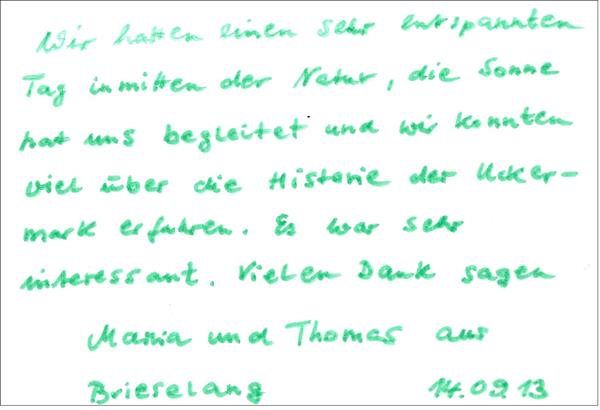 Wir hatten einen sehr entspannten
Tag inmitten der Natur, die Sonne
hat uns begleitet und wir konnten
viel über die Historie der Ucker-
mark erfahren. Es war sehr
interessant. Vielen Dank sagen
Maria und Thomas aus
Brieselang 14.09.13